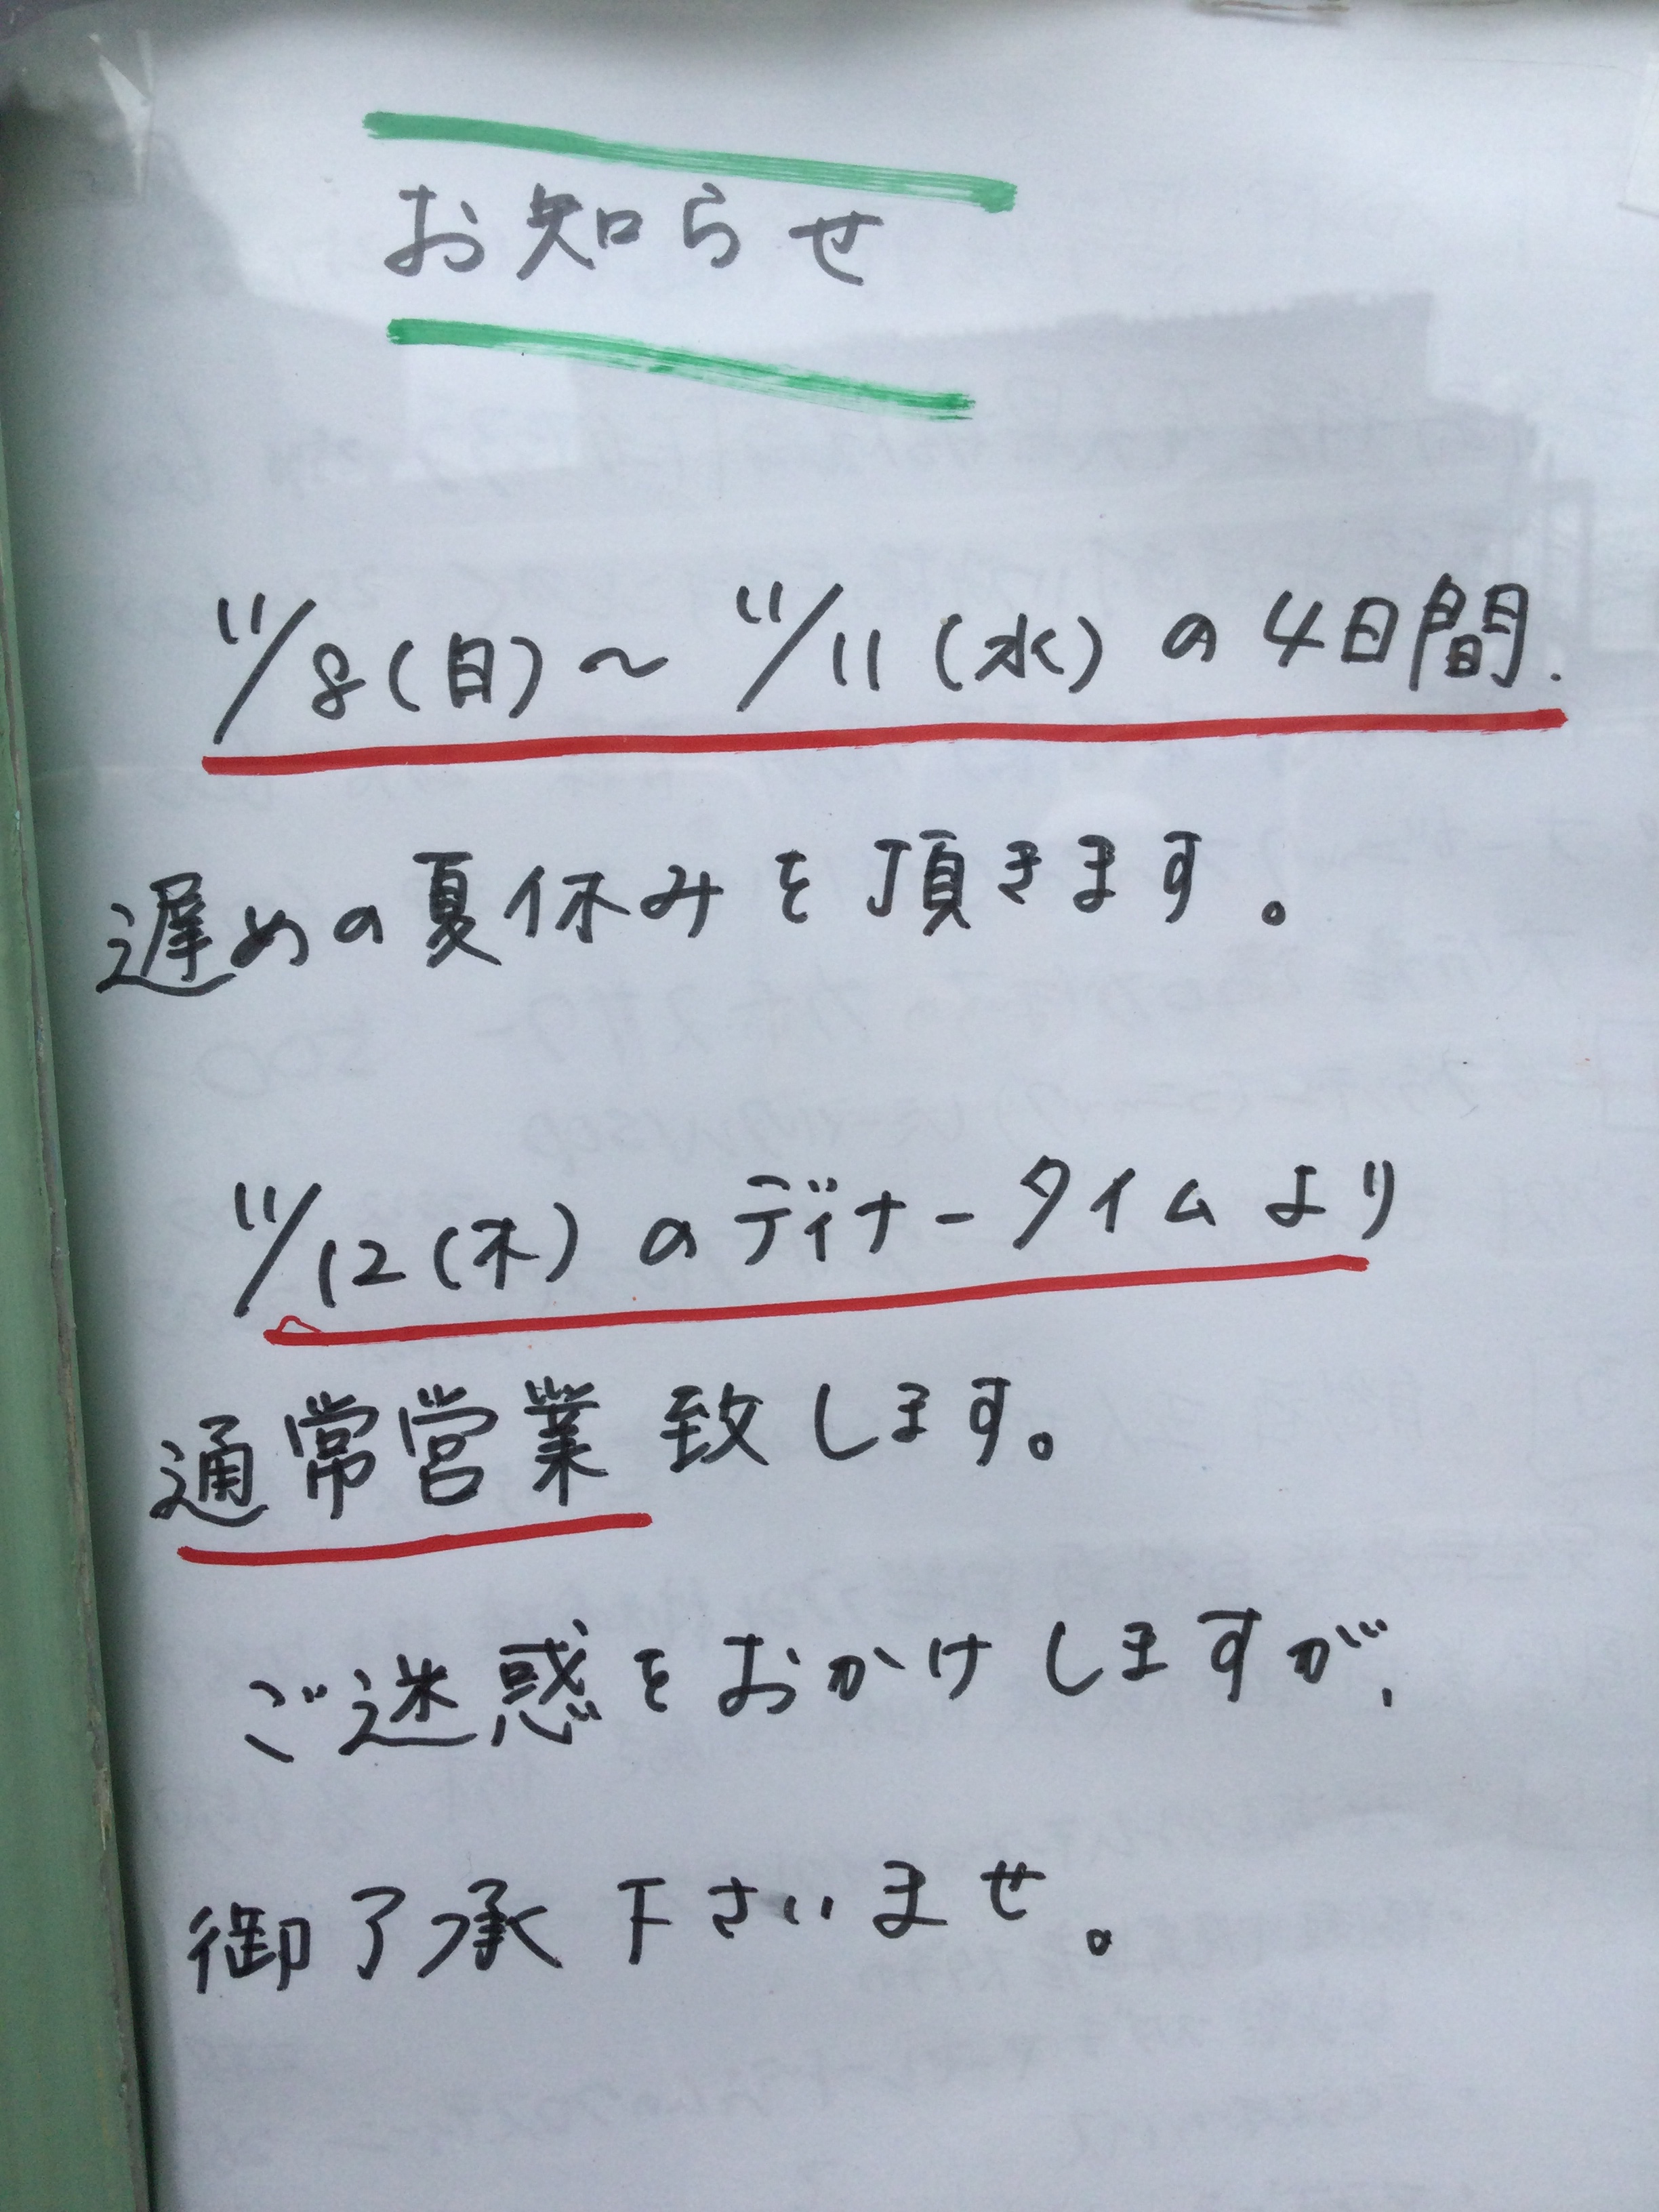 お知らせ
11/8(日)～11/11(水)の4日間.
遅めの夏休みを頂きます。
11/12(木)のディナータイムより
通常営業致します。
ご迷惑をおかけしますが、
御了承下さいませ。